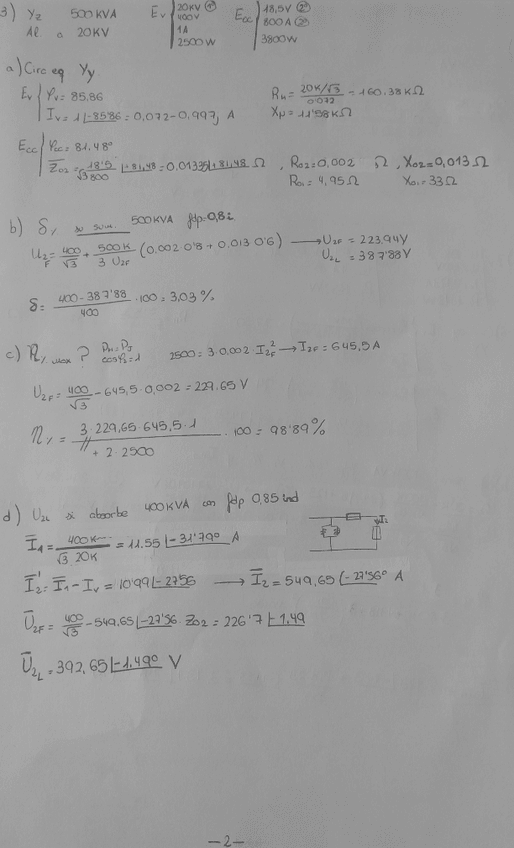 3) Yz 500KVA Ev 20KV 1º Ecc 18,5V 2º
Al. a 20KV 400V 800A 2º
1A 3800W
2500W
a) Circ eq Yy
Ev φv = 85,86 Rμ = 20K/√3 / 0'072 = 160,38KΩ
Iv = 1∟-85'86 = 0,072-0,997j A Xμ = 11'58KΩ
Ecc φcc = 81,48º
Z02 = 18'5 / √3 800 ∟+81,48 = 0,01335∟+81,48 Ω , R02=0,002 Ω , X02=0,013Ω
R01=4,95Ω X01=33Ω
b) δy si sum. 500KVA fdp=0,8i
U2F = 400/√3 + 500K / 3 U2F (0,002·0'8 + 0,013·0'6) → U2F = 223.94V
U2L = 387'88V
δ = 400-387'88 / 400 · 100 = 3,03 %
c) ηy max ? PFe=PJ cosφ2=1 2500 = 3·0,002 I2F² → I2F = 645,5A
U2F = 400/√3 - 645,5·0,002 = 229.65 V
ηy = 3·229,65·645,5·1 / // + 2·2500 · 100 = 98'89%
d) U2L si absorbe 400KVA con fdp 0,85 ind
I1 = 400K / √3·20K = 11.55∟-31'79º A
I'2 = I1 - Iv = 10'99∟-27'56 → I2 = 549,65∟-27'56º A
U2F = 400/√3 - 549,65∟-27'56 · Z02 = 226'7∟-1,49
U2L = 392,65∟-1,49º V
-2-